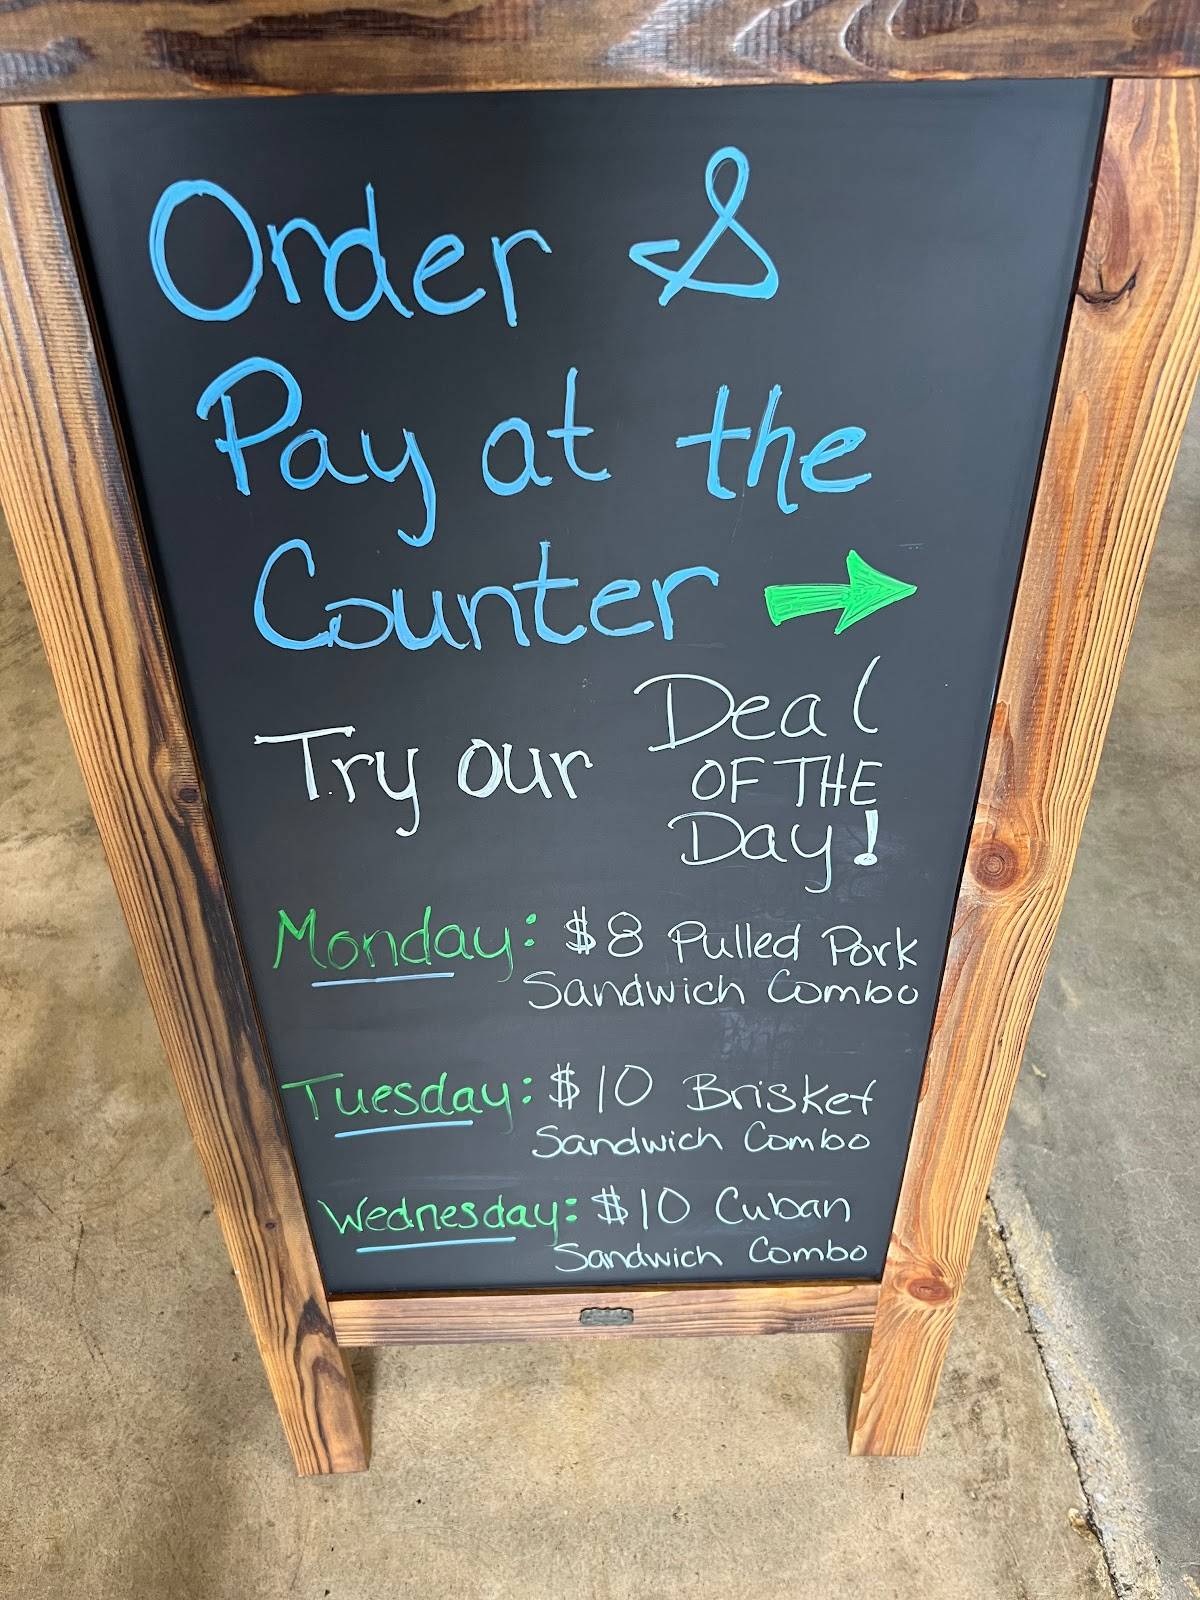 Order &
Pay at the
Counter
Try our Deal
OF THE
Day!
Monday: $8 Pulled Pork
Sandwich Combo
Tuesday: $10 Brisket
Sandwich Combo
Wednesday: $10 Cuban
Sandwich Combo